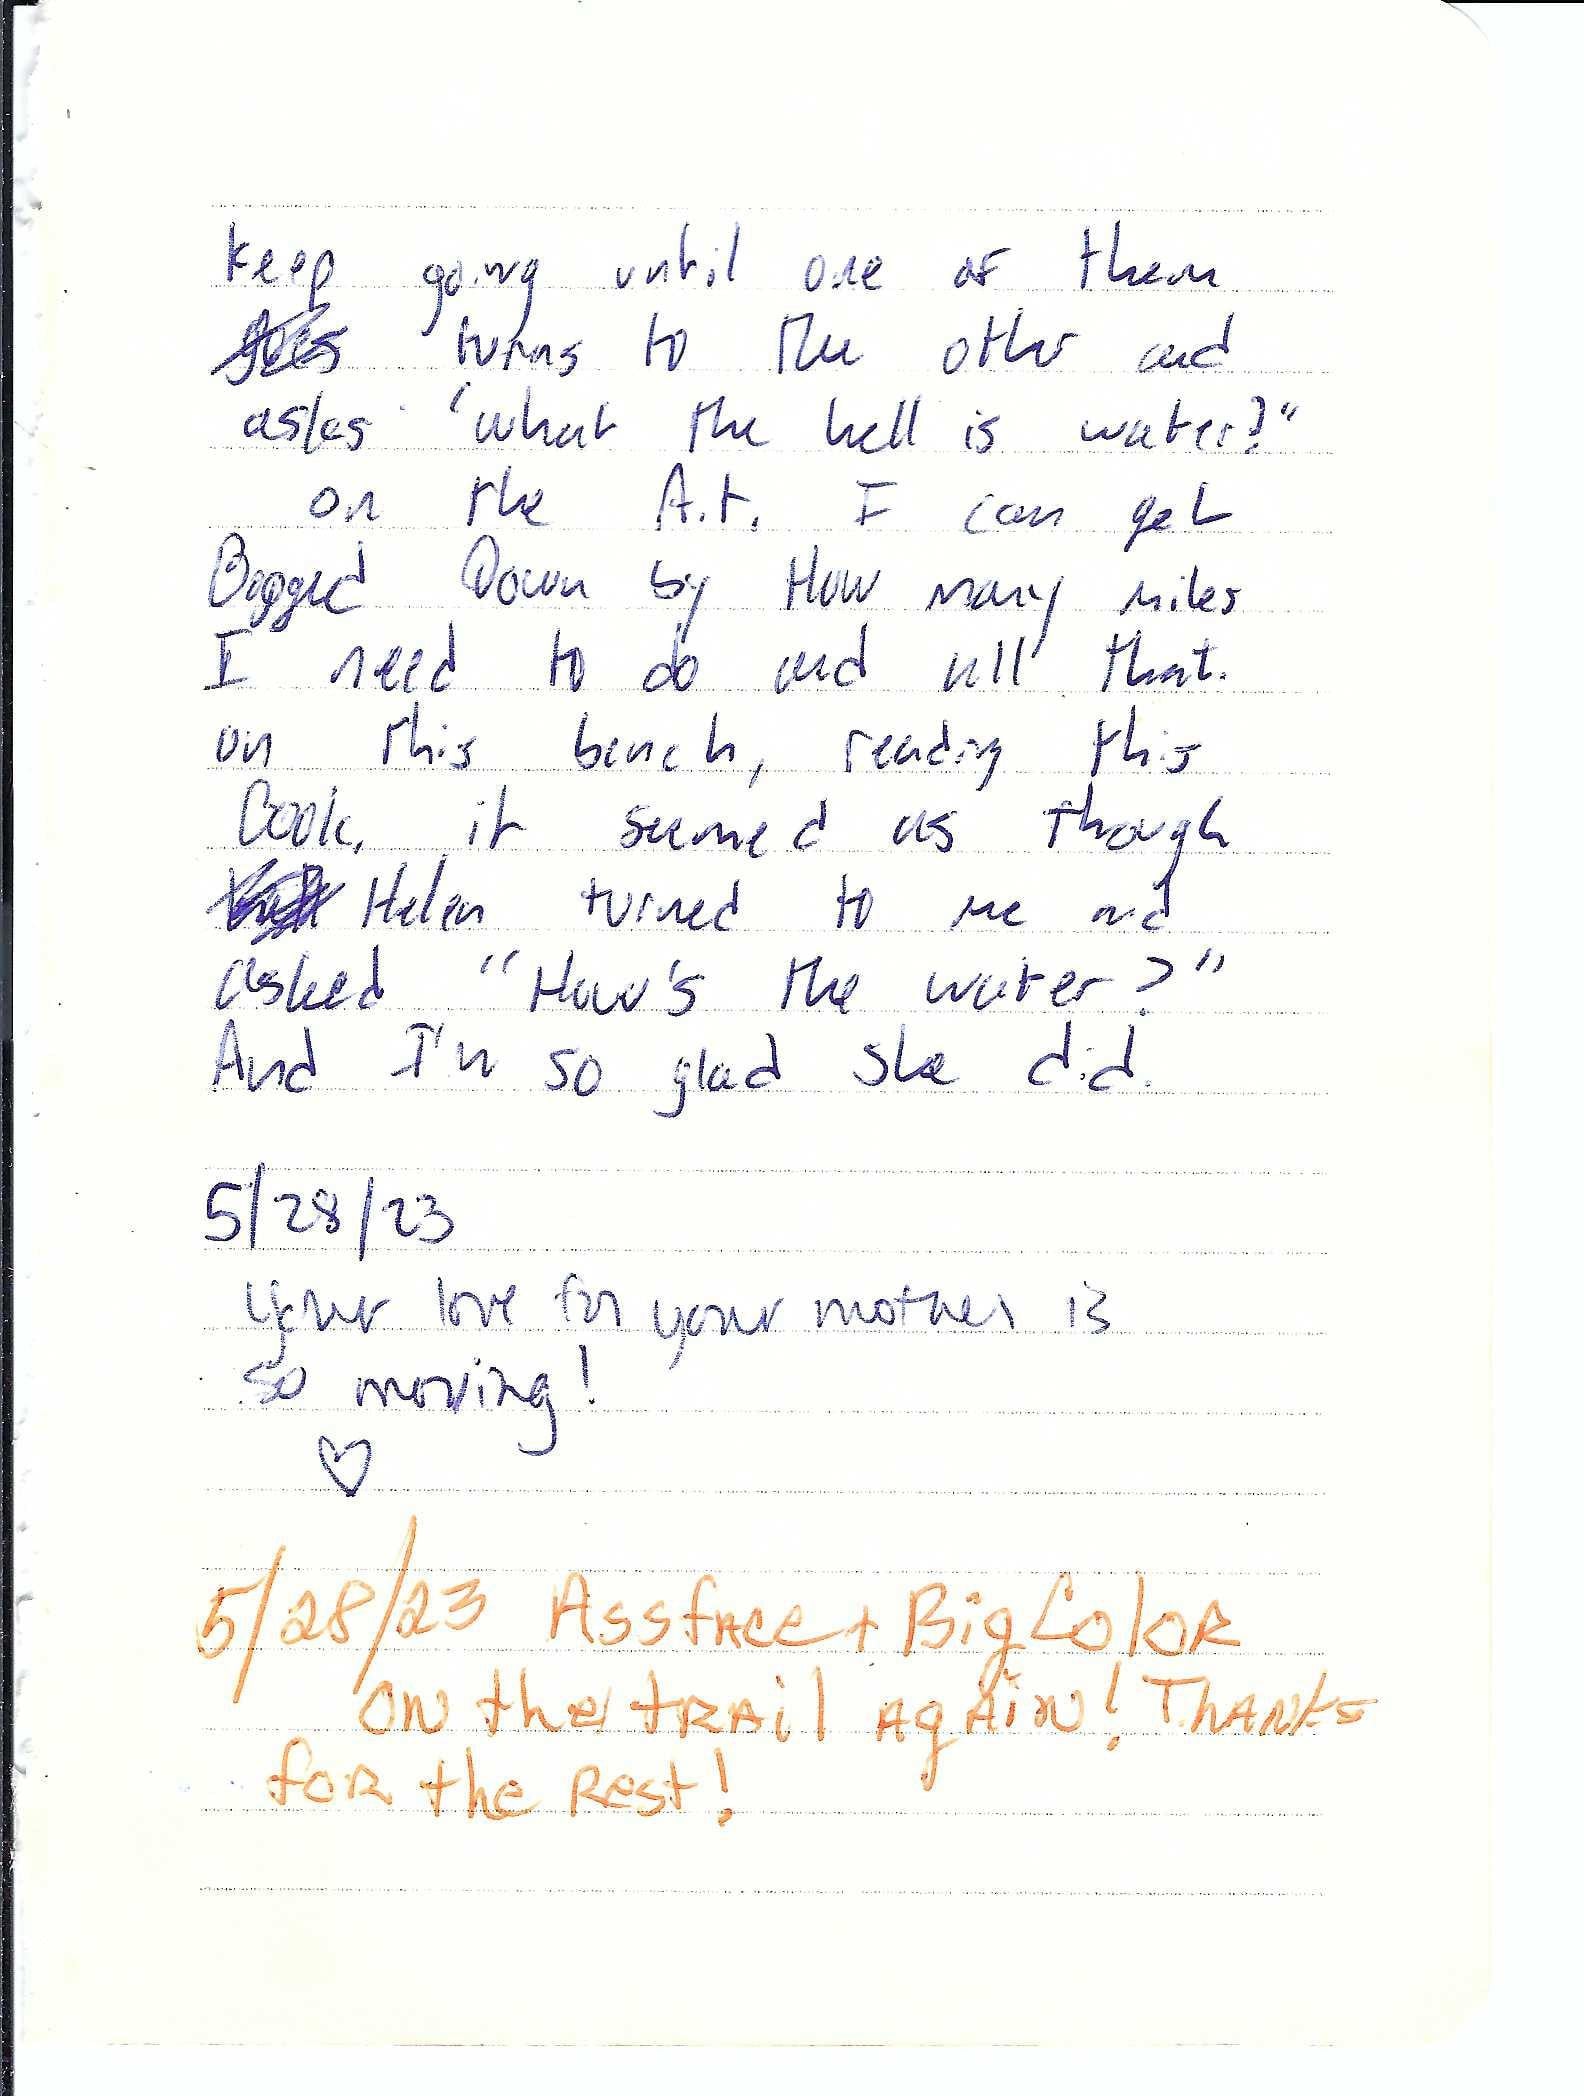 keep going until one of them
goes turns to the other and
asks "what the hell is water?"
on the A.t. I can get
Bogged Down by How many miles
I need to do and all that.
on this bench, reading this
Book, it seemed as though
Helen turned to me and
asked "How's the water?"
And I'm so glad she did.
5/28/23
Your love for your mother is
so moving!
♡
5/28/23 Assface + Big Color
on the trail again! Thanks
for the Rest!